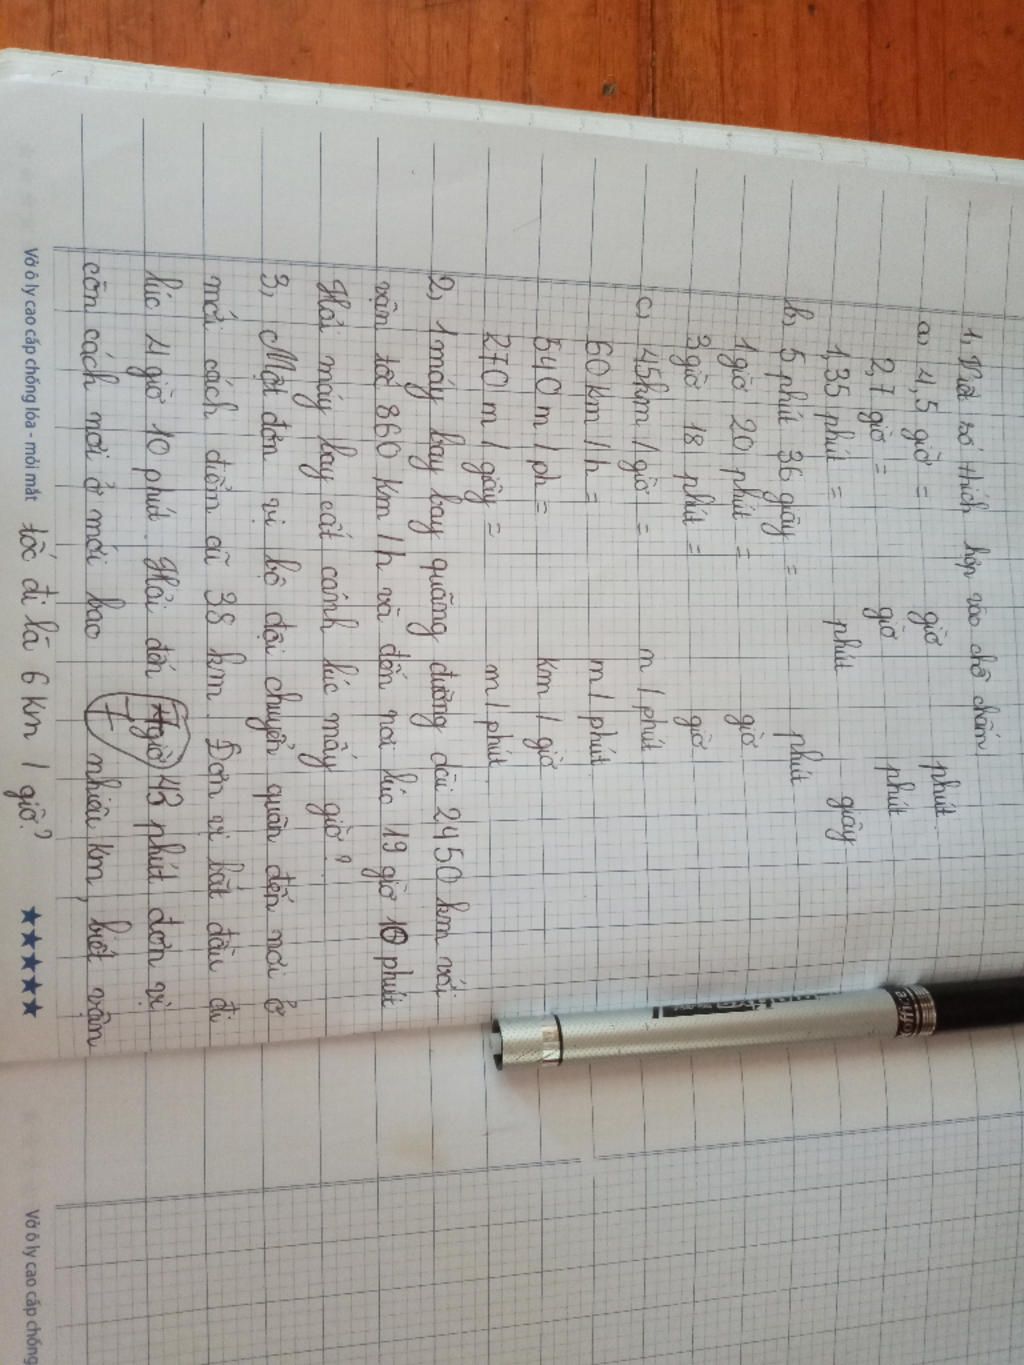 1, Viết số thích hợp vào chỗ chấm
a, 4,5 giờ = giờ phút.
2,7 giờ = giờ phút
1,35 phút = phút giây
b, 5 phút 36 giây = phút
1 giờ 20 phút = giờ
3 giờ 18 phút = giờ
c, 45km / giờ = m / phút
60 km / h = m / phút
540 m / ph = km / giờ
270 m / giây = m / phút
2, 1 máy bay bay quãng đường dài 2450 km với
vận tốc 860 km / h và đến nơi lúc 19 giờ 10 phút
Hỏi máy bay cất cánh lúc mấy giờ?
3, Một đơn vị bộ đội chuyển quân đến nơi ở
mới cách điểm cũ 38 km. Đơn vị bắt đầu đi
lúc 4 giờ 10 phút. Hỏi đến giờ 43 phút đơn vị
7
còn cách nơi ở mới bao nhiêu km, biết vận
tốc đi là 6 km / giờ?
Vở ô ly cao cấp chống lóa - mỏi mắt
Vở ô ly cao cấp chống